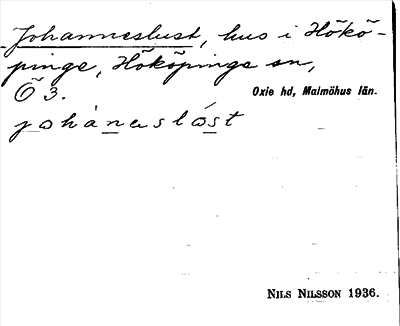 Johanneslust, hus i Hökö-
pinge, Hököpinge sn,
Ö 3.
Oxie hd, Malmöhus län.
johànaslóst
NILS NILSSON 1936.